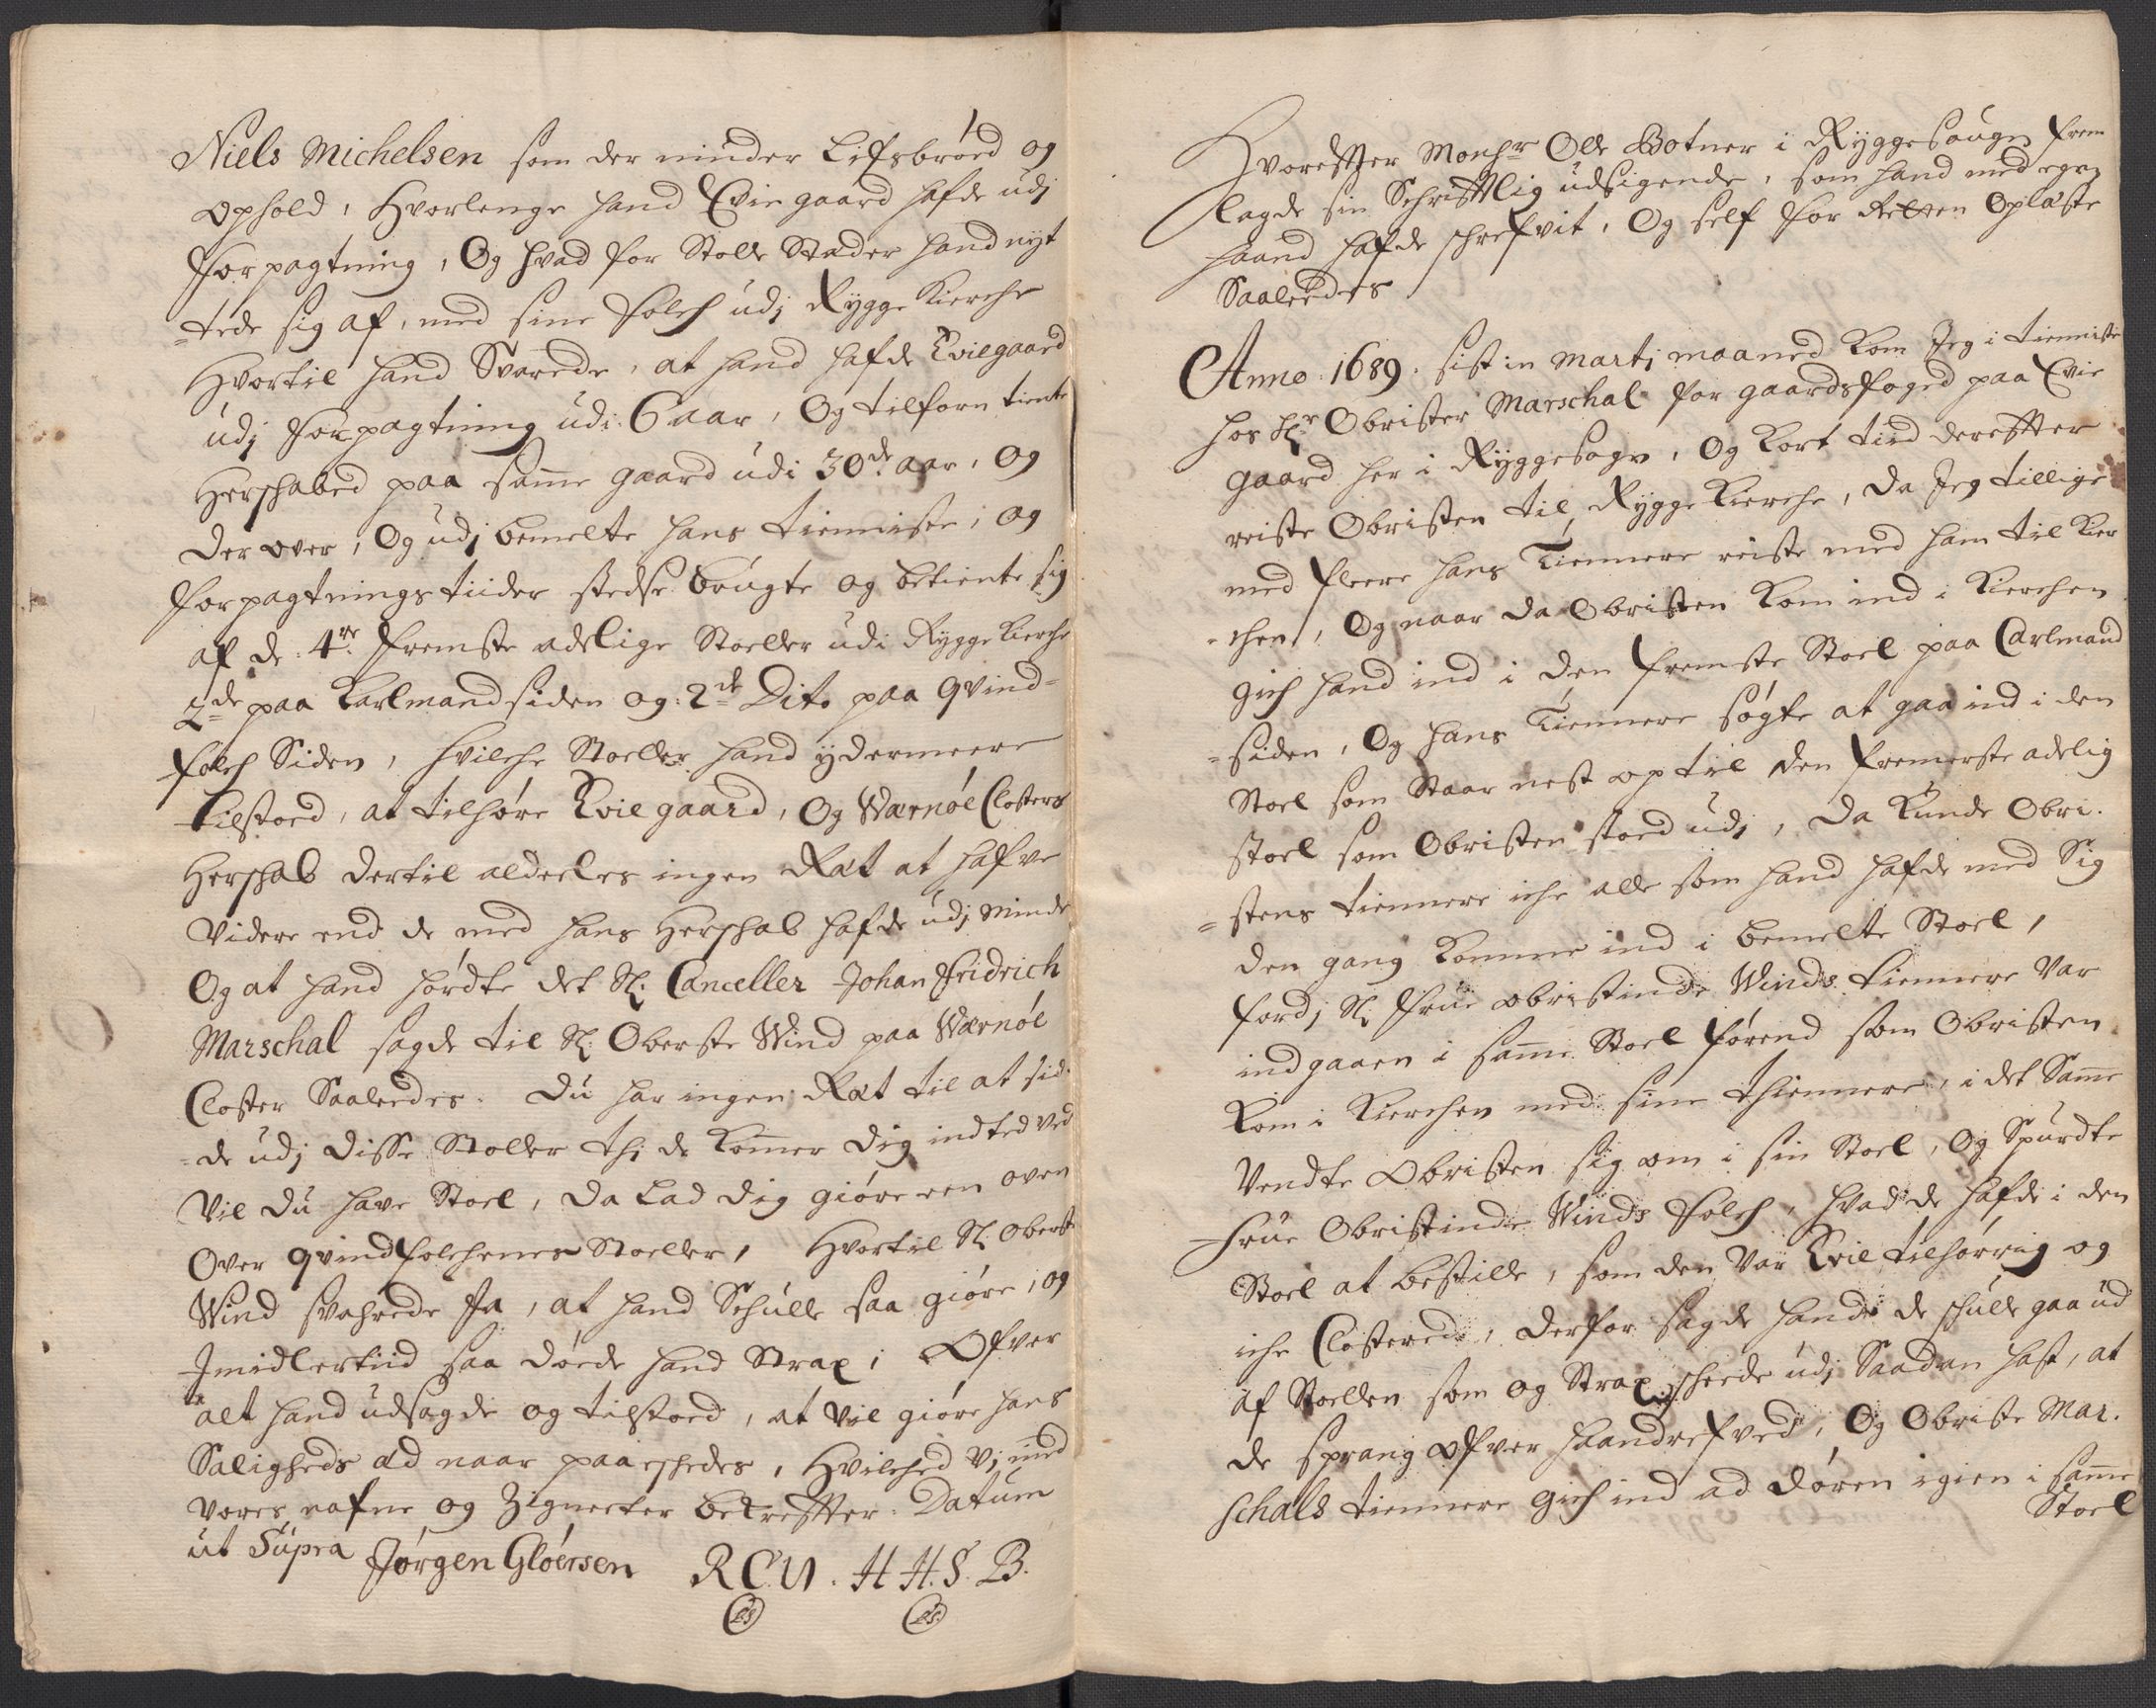 Niels Michelsen som der nunder Lifsbröd og
ophold, Hvorlenge hand Evie gaard hafde udj
forpagtning, Og hvad for Stolle Stader hand nyt
=tede sig af, med sine folch udj Rygge Kierche
Hvortil hand Svarede, at hand hafde Evie gaard
udj forpagtning udi 6 aar, Og tilforn tiente
Herschabed paa samme gaard udi 30de aar, og
der over, Og udj bemelte hans tienniste, og
forpagtnings tiider stedse brugte og betiente sig
af de 4re fremste adelige Stoeller udi Rygge Kierche
2de paa Karlmandsiden og 2de Dito paa qvind=
folch Siden, hvilche Stoeller hand ydermeere
tilstoed, at tilhöre Evie gaard, Og Wærnöe Closters
Herschab dertil aldeeles ingen Ræt at hafve
videre end de med hans Herschab hafde udj minde
Og at hand hördte det Sl: Canceller Johan Fridrich
Marschal sagde til Sl: Oberste Wind paa Wærnöe
Closter Saaleedes. Du har ingen Ræt til at sid-
=de udj disse Stoller thi de kommer dig indted ved
vil du have Stoel, da Lad dig giöre een oven
Over qvindfolchenes Stoeller, Hvortil Sl: Oberst
Wind svahrede Ja, at hand Schulle saa giöre, og
Jmidlertiid saa döede hand Strax; Ofver
alt hand udsagde og tilstoed, at vil giöre hans
Saligheds æd naar paaeschedes, Hvilched vj med
vores nafne og Zigneter bekreffter. Datum
ut Supra Jörgen Glöersen R C N. H H. S. B.
LS LS
Hvorefter Monhr Olle Botner i Ryggesougn frem
lagde sin Schrifftlig udsigende, som hand med egen
haand hafde schrefvit, Og self for Retten Oplæste
Saaleedes
Anno 1689. sist in Martj maaned kom Jeg i tienniste
hos Hr Obrister Marschal for gaardsfoged paa Evie
gaard her i Ryggesogn, Og kort tied derefter
reiste Obristen til Rygge Kierche, da Jeg tillige
med fleere hans Tiennere reiste med ham til Kier
=chen, Og naar da Obristen kom ind i Kierchen
gich hand ind i den fremste Stoel paa Carlmand
=siden, Og hans Tiennere sögte at gaa ind i den
Stoel som Staar nest op til den fremerste adelig
stoel som Obristen stoed udj, da kunde Obri-
=stens tiennere iche alle som hand hafde med Sig
den gang komme ind i bemelte Stoel,
fordj Sl: Frue obristinde Winds tiennere var
indgaaen i samme Stoel förend som Obristen
kom i Kierchen med sine thiennere, i det Samme
vendte Obristen sig om i sin Stoel, Og Spurdte
Frue Obristinde Winds folch, hvad de hafde i den
Stoel at bestille, som den var Evie tilhörrig og
iche Closteret, derfor sagde hand de schulle gaa ud
af Stoellen som og Strax scheede udj Saadan hast, at
de sprang ofver Haandrefved, Og Obriste Mar-
schals tiennere gich ind ad dören igien i samme
Stoel